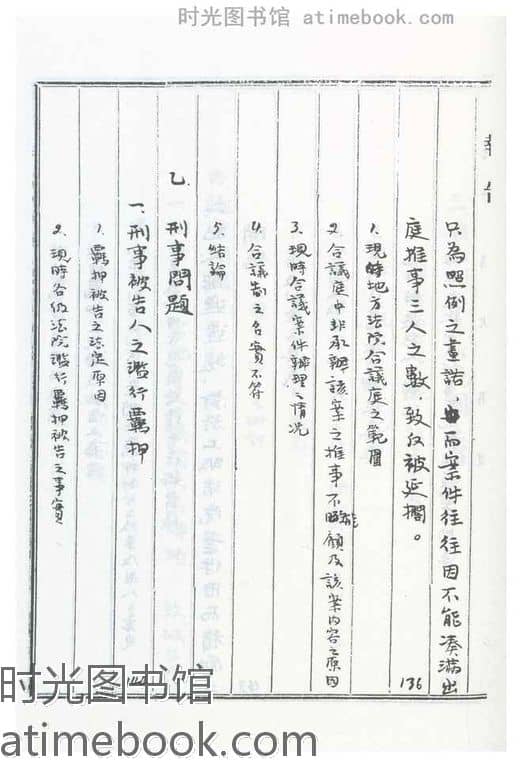 时光图书馆 atimebook.com
報告
只為照例之畫諾，而案件往往因不能湊滿出
庭推事三人之數，致仅被延擱。 136
1. 現時地方法院合議庭之範圍
2. 合議庭中非承辦該案之推事不能顧及該案内容之原因
3. 現時合議案件辦理之情况
4. 合議制之名實不符
5. 結論
乙. 刑事問題
一. 刑事被告人之濫行羈押
1. 羈押被告之法定原因
2. 現時各级法院濫行羈押被告之事實
时光图书馆
atimebook.com